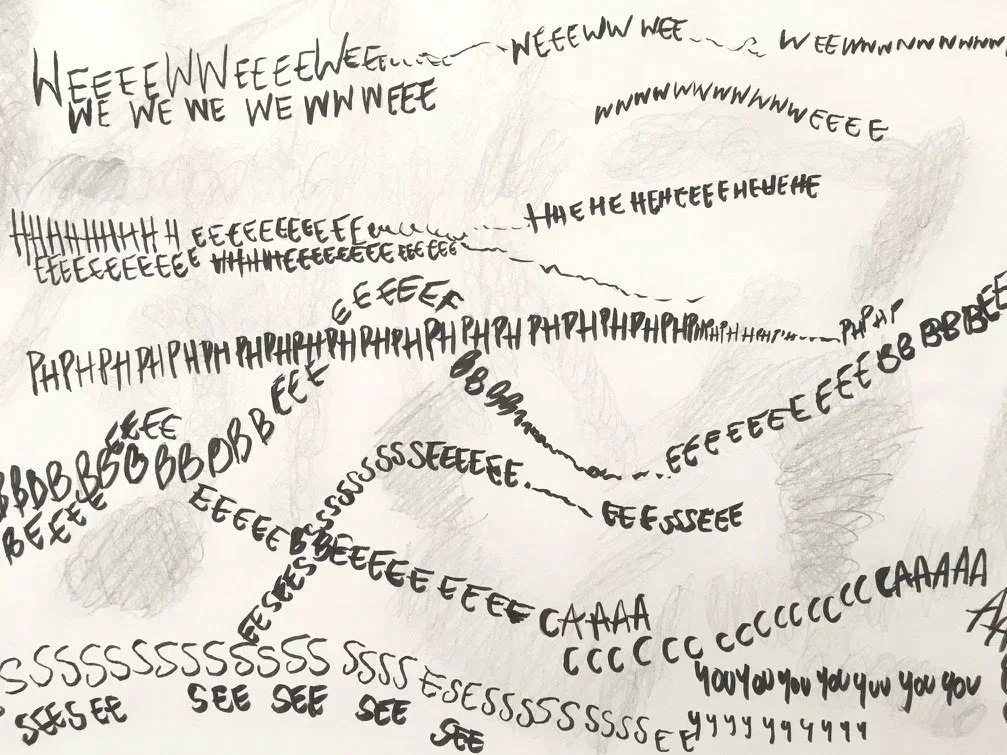 WEEEEWWEEEEWEE
WEEEWWWEE
WEEWWWWWWWWW
WE WE WE WE WWWEEE
WWWWWWWWWWWEEEE
HHHHHHHH H EEEEEEEEEEE
HHEHE HEHEEEEHEHEHE
EEEEEEEEEEE HHHHEEEEEEEEE EEEEEE
EEEEEEE
PHPHPHPHPHPHPHPHPHPHPHPHPHPHPHPHPHPHPH
PHPHP
EEE
BBBB
EEEEEEEEEEEEBBBBBBEEE
EEEEE
BBBBBBBBBBBB
BEEEE
SSSSSSSSSSEEEEEE
EEEEEE BBEEEEEE EEEEE
EEESSSEEE
EESEES
CAAAA
CCCCCC CCCCCCCCCCCAAAAA
SSSSSSSSSSSSSS SSSS ESESSSSSSSSSSEE
YOUYOUYOUYOUYOUYOUYOU
SEESEE SEE SEE SEE SEE
YYYYYYYYYYY